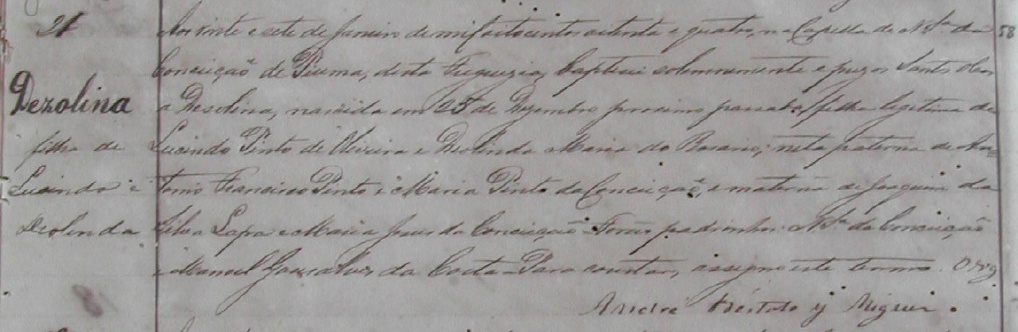 21
Dezolina
filha de
Lucindo e
Deolinda
Aos vinte e sete de Janeiro de mil oitocentos oitenta e quatro, na Capella de N. Sra da
Conceição de Piuma, desta Freguezia, baptizei solemnemente e puz os Santos Oleos
a Dezolina, nascida em 25 de Dezembro proximo passado, filha legitima de
Lucindo Pinto de Oliveira e Deolinda Maria do Rosario; neta paterna de An=
tonio Francisco Pinto e Maria Pinto da Conceição, e materna de Joaquim da
Silva Lapa e Maria Jesus da Conceição. Forão padrinhos N. Sra da Conceição
e Manoel Gonsalves da Costa. Para constar, assigno este termo. O Vigo
58